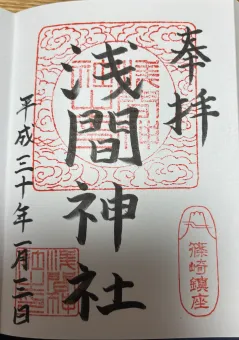 奉拝
浅間神社
平成三十年一月三日
篠崎鎮座